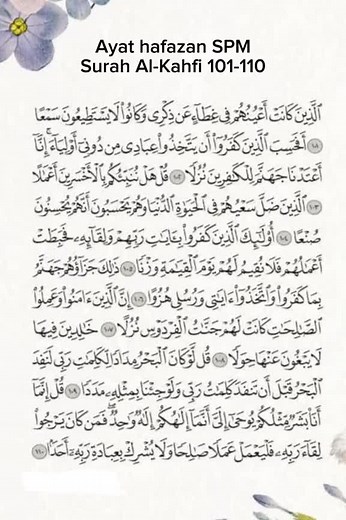 Ayat hafazan SPM
Surah Al-Kahfi 101-110
ٱلَّذِينَ كَانَتْ أَعْيُنُهُمْ فِى غِطَآءٍ عَن ذِكْرِى وَكَانُوا۟ لَا يَسْتَطِيعُونَ سَمْعًا
١٠١ أَفَحَسِبَ ٱلَّذِينَ كَفَرُوٓا۟ أَن يَتَّخِذُوا۟ عِبَادِى مِن دُونِىٓ أَوْلِيَآءَ ۚ إِنَّآ
أَعْتَدْنَا جَهَنَّمَ لِلْكَٰفِرِينَ نُزُلًا ١٠٢ قُلْ هَلْ نُنَبِّئُكُم بِٱلْأَخْسَرِينَ أَعْمَٰلًا
١٠٣ ٱلَّذِينَ ضَلَّ سَعْيُهُمْ فِى ٱلْحَيَوٰةِ ٱلدُّنْيَا وَهُمْ يَحْسَبُونَ أَنَّهُمْ يُحْسِنُونَ
صُنْعًا ١٠٤ أُو۟لَٰٓئِكَ ٱلَّذِينَ كَفَرُوا۟ بِـَٔايَٰتِ رَبِّهِمْ وَلِقَآئِهِۦ فَحَبِطَتْ
أَعْمَٰلُهُمْ فَلَا نُقِيمُ لَهُمْ يَوْمَ ٱلْقِيَٰمَةِ وَزْنًا ١٠٥ ذَٰلِكَ جَزَآؤُهُمْ جَهَنَّمُ
بِمَا كَفَرُوا۟ وَٱتَّخَذُوٓا۟ ءَايَٰتِى وَرُسُلِى هُزُوًا ١٠٦ إِنَّ ٱلَّذِينَ ءَامَنُوا۟ وَعَمِلُوا۟
ٱلصَّٰلِحَٰتِ كَانَتْ لَهُمْ جَنَّٰتُ ٱلْفِرْدَوْسِ نُزُلًا ١٠٧ خَٰلِدِينَ فِيهَا
لَا يَبْغُونَ عَنْهَا حِوَلًا ١٠٨ قُل لَّوْ كَانَ ٱلْبَحْرُ مِدَادًا لِّكَلِمَٰتِ رَبِّى لَنَفِدَ
ٱلْبَحْرُ قَبْلَ أَن تَنفَدَ كَلِمَٰتُ رَبِّى وَلَوْ جِئْنَا بِمِثْلِهِۦ مَدَدًا ١٠٩ قُلْ إِنَّمَآ
أَنَا۠ بَشَرٌ مِّثْلُكُمْ يُوحَىٰٓ إِلَىَّ أَنَّمَآ إِلَٰهُكُمْ إِلَٰهٌ وَٰحِدٌ ۖ فَمَن كَانَ يَرْجُوا۟
لِقَآءَ رَبِّهِۦ فَلْيَعْمَلْ عَمَلًا صَٰلِحًا وَلَا يُشْرِكْ بِعِبَادَةِ رَبِّهِۦٓ أَحَدًۢا ١١٠